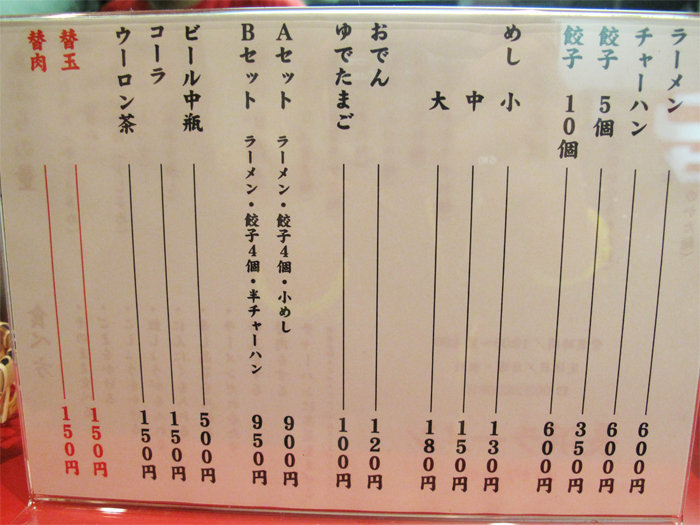 ラーメン 600円
チャーハン 600円
餃子 5個 350円
餃子 10個 600円
めし 小 130円
中 150円
大 180円
おでん 120円
ゆでたまご 100円
Aセット ラーメン・餃子4個・小めし 900円
Bセット ラーメン・餃子4個・半チャーハン 950円
ビール中瓶 500円
コーラ 150円
ウーロン茶 150円
替玉 150円
替肉 150円